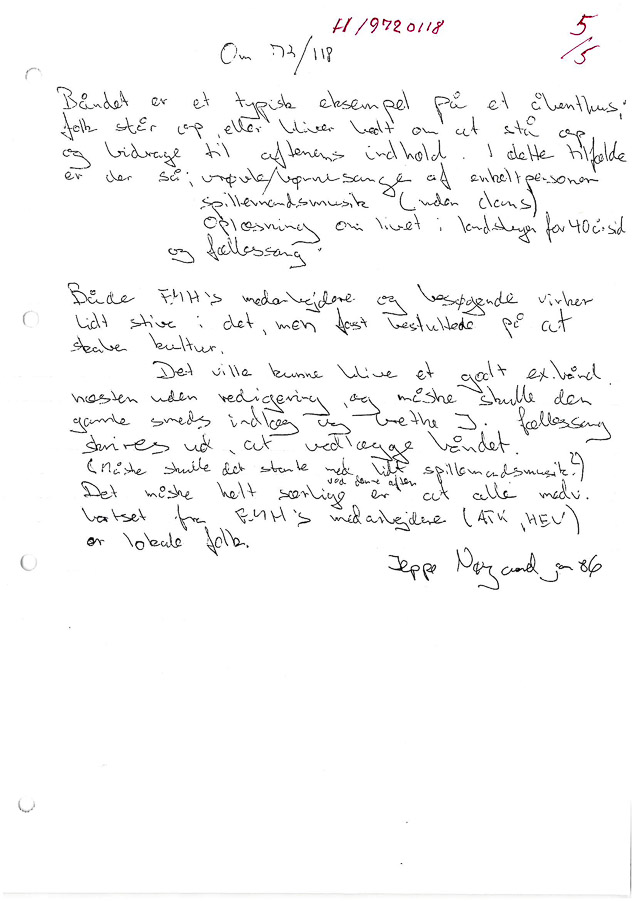 H/9720118
5/5
Om 72/118
Båndet er et typisk eksempel på et åbenthus;
folk står op, eller bliver bedt om at stå op
og bidrage til aftenens indhold. I dette tilfælde
er der så; vrøvle/børnesange af enkeltpersoner
spillemandsmusik (uden dans)
Oplæsning om livet i landsbyen for 40 år sid
og fællessang.
Både FMH's medarbejdere og besøgende virker
lidt stive i det, men fast besluttede på at
skabe kultur.
Det ville kunne blive et godt ex.bånd
næsten uden redigering, og måske skulle den
gamle smeds indlæg og Grethe J. fællessang
skrives ud, at vedlægge båndet.
(Måske skulle det starte med lidt spillemandsmusik?)
ved denne aften
Det måske helt særlige er at alle medv.
bortset fra FMH's medarbejdere (ATK, HEV)
er lokale folk.
Jeppe jan 86